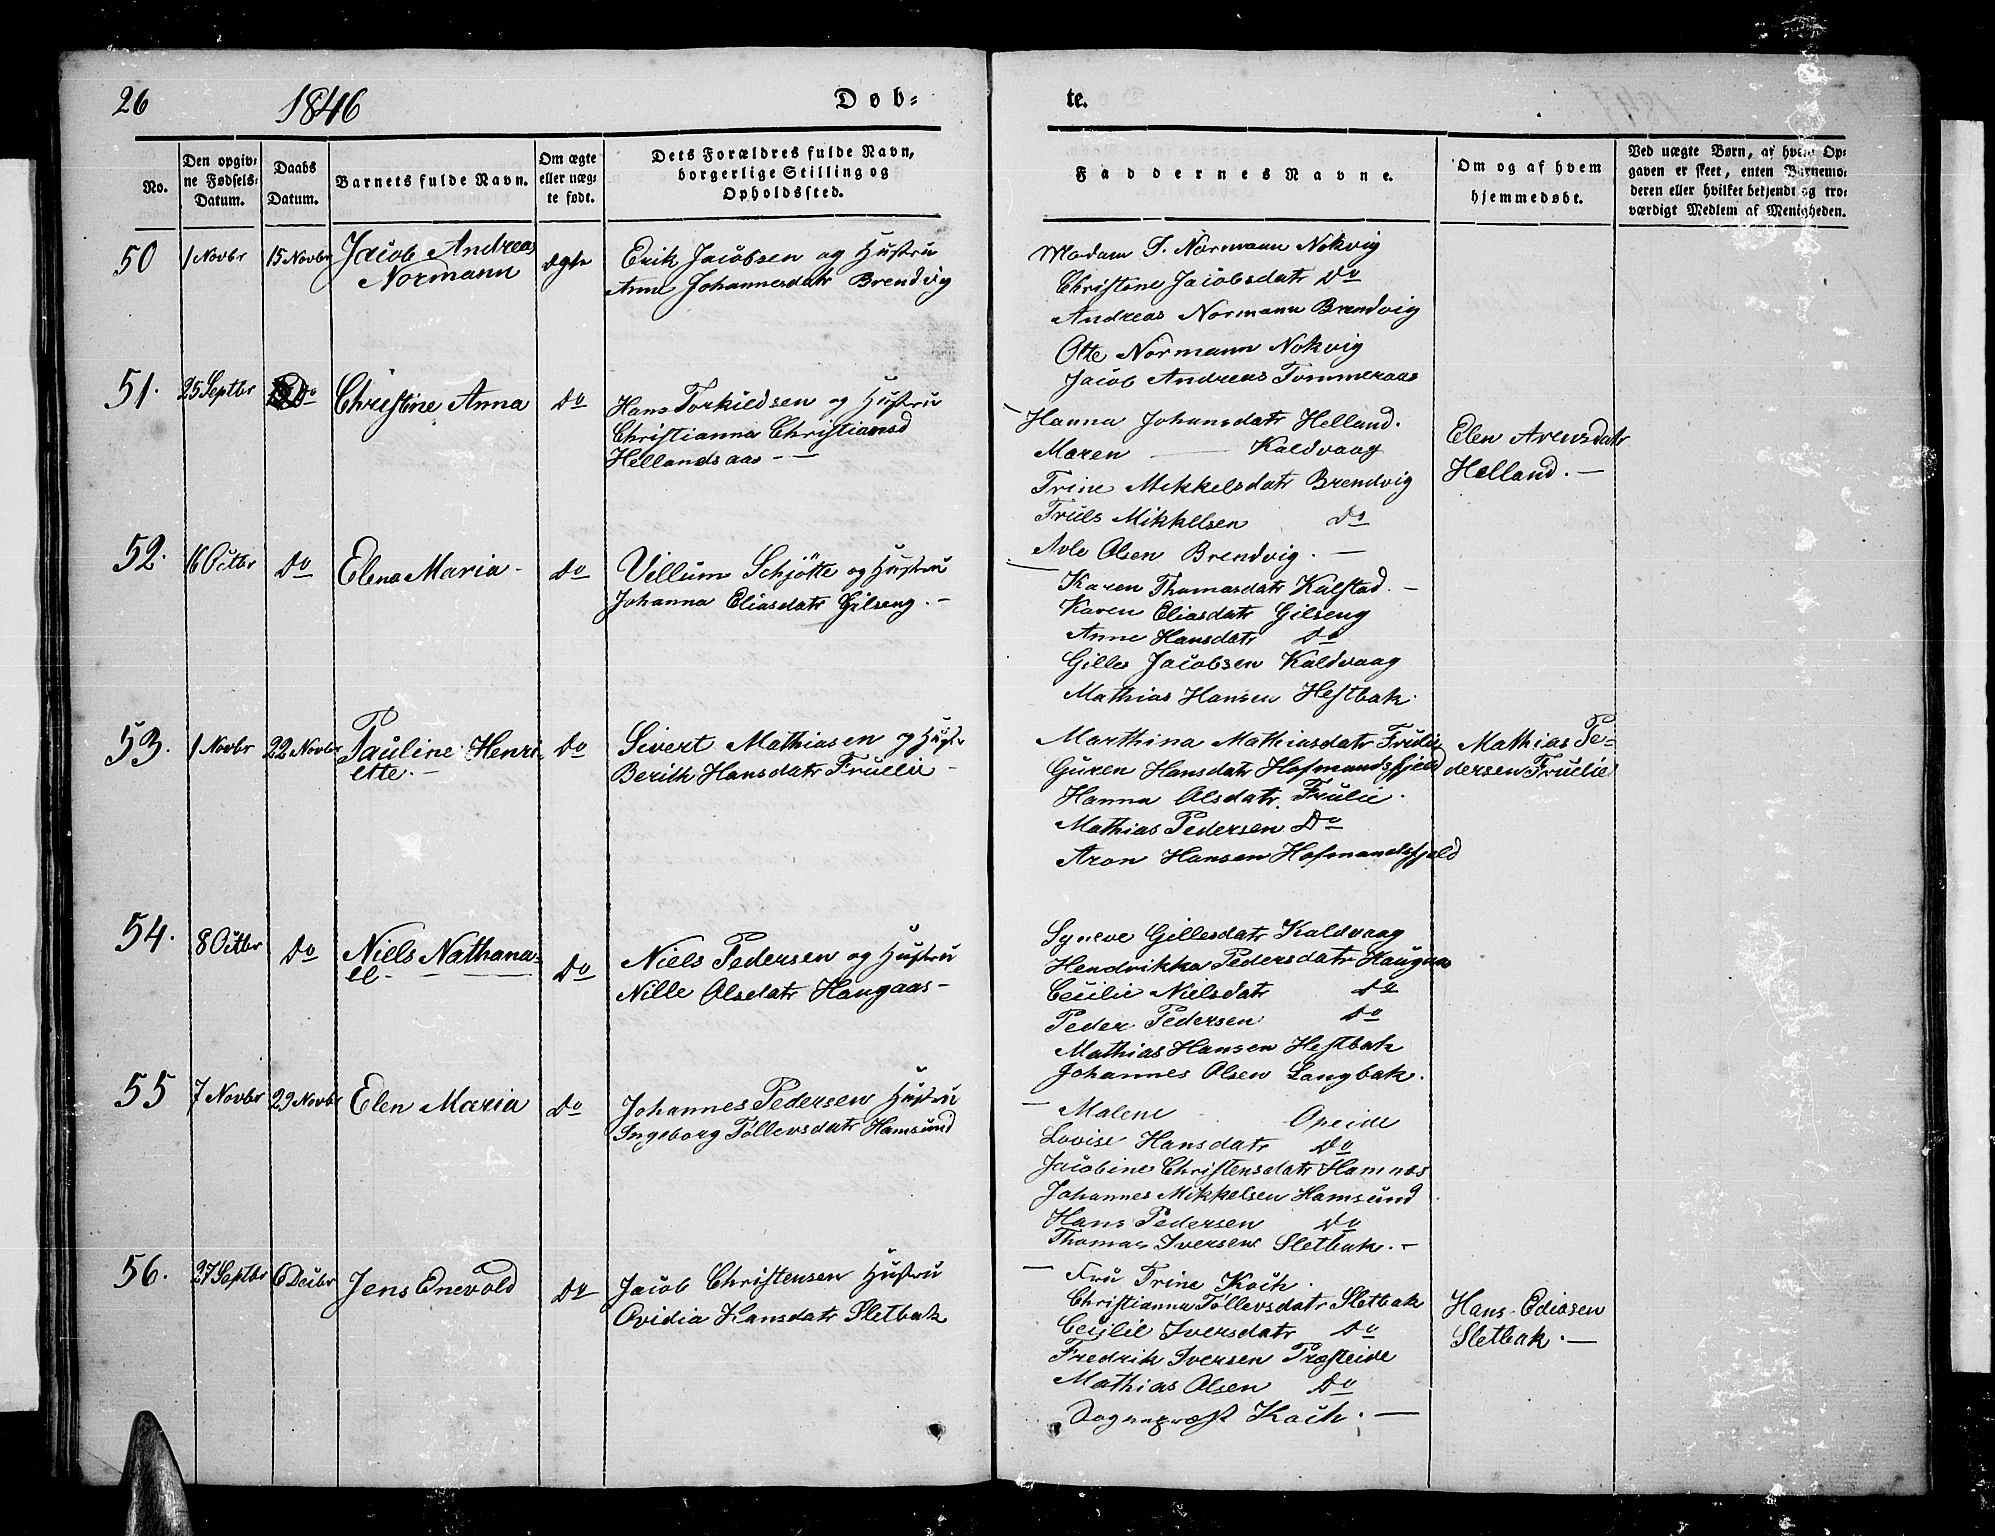 26 1846 Døb-
te.
No.
Den opgiv-
ne Fødsels-
Datum.
Daabs
Datum.
Barnets fulde Navn.
Om ægte
eller uæg-
te født.
Dets Forældres fulde Navn,
borgerlige Stilling og
Opholdssted.
Faddernes Navne.
Om og af hvem
hjemmedøbt.
Ved uægte Børn, af hvem Op-
gaven er skeet, enten Barnemo-
deren eller hvilket bekjendt og tro-
værdigt Medlem af Menigheden.
50 1 Novbr 15 Novbr Jacob Andreas
Normann
ægte
Erik Jacobsen og Hustru
Anne Johannesdatr Brendvig
Madam S. Normann Nokvig
Christine Jacobsdatr Do
Andreas Normann Brendvig
Otte Normann Nokvig
Jacob Andreas Tommeraas
51. 25 Septbr Do Christine Anna Do
Hans Torkildsen og Hustru
Christianna Christiansd
Hellandsaas - -
Hanna Johansdatr Helland.
Maren — Kaldvaag
Trine Mikkelsdatr Brendvig
Truls Mikkelsen Do
Avle Olsen Brendvig. —
Elen Arensdatr
Helland. —
52. 16 Octbr Do Elena Maria - Do
Villum Schjötte og Hustru
Johanna Eliasdatr Gilseng. -
Karen Thomasdatr Kalstad. -
Karen Eliasdatr Gilseng
Anne Hansdatr Do
Gilles Jacobsen Kaldvaag
Mathias Hansen Hestbak.
53. 1 Novbr 22 Novbr Pauline Henri-
ette. -
Do
Sivert Mathiasen og Hustr
Berith Hansdatr Fruelie -
Marthina Mathiasdatr Frulie
Guren Hansdatr Hofmandsfjeld
Hanna Olsdatr. Frulie.
Mathias Pedersen Do
Aron Hansen Hofmandsfjeld
Mathias Pe-
dersen Fruelie
54. 8 Octbr Do Niels Nathana-
el -
Do
Niels Pedersen og Hustru
Nille Olsdatr Haugaas -
Syneve Gillesdatr Kaldvaag
Hendrikka Pedersdatr Haugaas
Cecilie Nielsdatr Do
Peder Pedersen Do
Mathias Hansen Hestbak
Johannes Olsen Langbak.
55 7 Novbr 29 Novbr Elen Maria Do
Johannes Pedersen Hustru
Ingeborg Tøllevsdatr Hamsund
Malene Opeide
Lovise Hansdatr Do
Jacobine Christensdatr Hamnes
Johannes Mikkelsen Hamsund
Hans Pedersen Do
Thomas Iversen Sletbak. -
56. 27 Septbr 6 Decbr Jens Enevold Do
Jacob Christensen Hustru
Ovidia Hansdatr Sletbak
Fru Trine Koch.
Christianna Tøllevsdatr Sletbak
Cecilie Iversdatr Do
Fredrik Iversen Præsteide
Mathias Olsen Do
Sognepræst Koch. —
Hans Ediasen
Sletbak. —